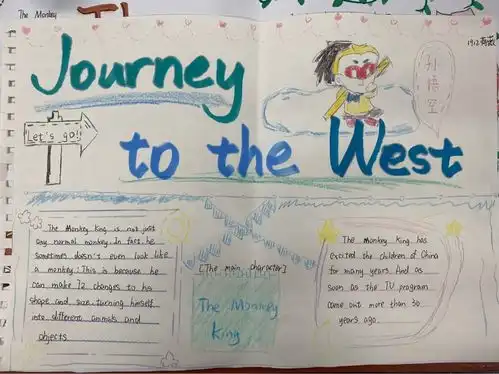 The Monkey
Journey
to the West
Let's go!
孙
悟
空
The Monkey King is not just
any normal monkey. In fact he
sometimes doesn't even look like
a monkey! This is because he
can make 72 changes to his
shape and size turning himself
into different animals and
objects
[The main character]
The Monkey
King
The Monkey King has
excited the children of China
for many years. And as
soon as the TV program
came out more than 30
years ago.